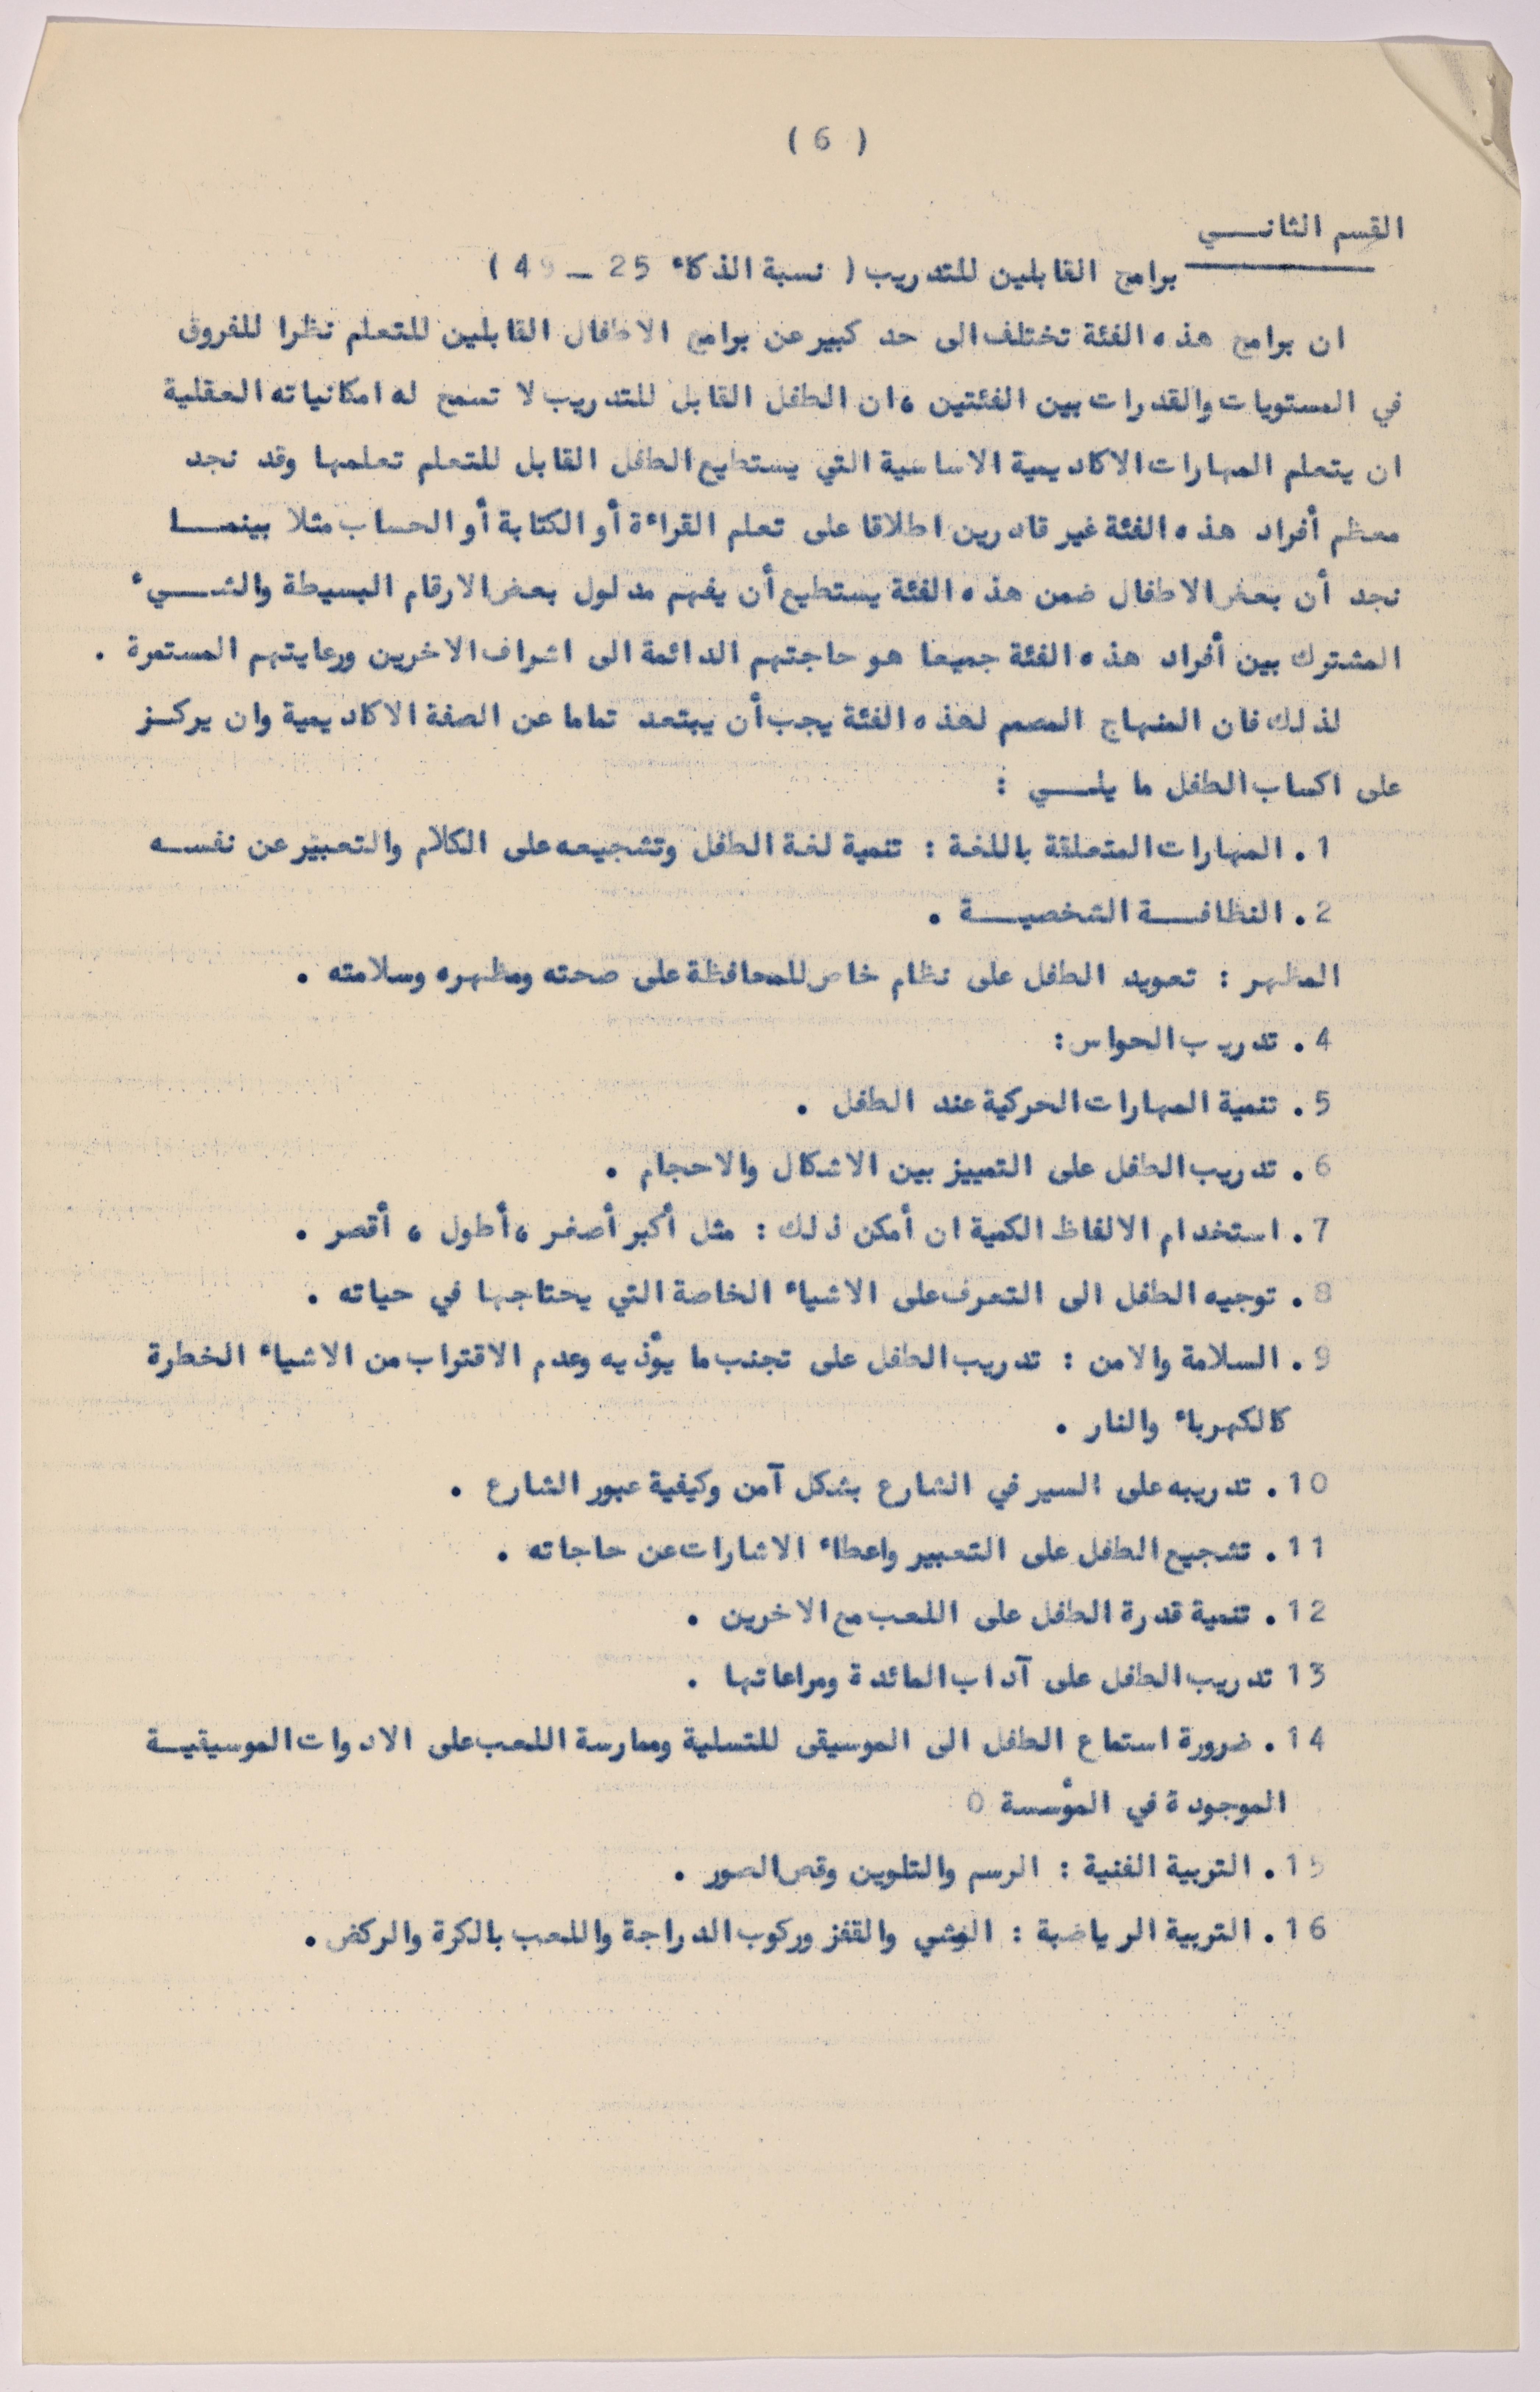 ( 6 )
القسم الثانـــي
برامج القابلين للتدريب ( نسبة الذكاء 25 ــ 49 )
ان برامج هذه الفئة تختلف الى حد كبير عن برامج الاطفال القابلين للتعلم نظرا للفروق
في المستويات والقدرات بين الفئتين ، ان الطفل القابل للتدريب لا تسمح له امكانياته العقلية
ان يتعلم المهارات الاكاديمية الاساسية التي يستطيع الطفل القابل للتعلم تعلمها وقد نجد
معظم أفراد هذه الفئة غير قادرين اطلاقا على تعلم القراءة أو الكتابة أو الحساب مثلا بينمـــا
نجد أن بعض الاطفال ضمن هذه الفئة يستطيع أن يفهم مدلول بعض الارقام البسيطة والشـــيء
المشترك بين أفراد هذه الفئة جميعا هو حاجتهم الدائمة الى اشراف الاخرين ورعايتهم المستمرة .
لذلك فان المنهاج المصمم لهذه الفئة يجب أن يبتعد تماما عن الصفة الاكاديمية وان يركــز
على اكساب الطفل ما يلـــي :
1 . المهارات المتعلقة باللغة : تنمية لغة الطفل وتشجيعه على الكلام والتعبير عن نفســه
2 . النظافـــة الشخصيـــة .
المظهر : تعويد الطفل على نظام خاص للمحافظة على صحته ومظهره وسلامته .
4 . تدريب الحواس :
5 . تنمية المهارات الحركية عند الطفل .
6 . تدريب الطفل على التمييز بين الاشكال والاحجام .
7 . استخدام الالفاظ الكمية ان أمكن ذلك : مثل أكبر أصغر ، أطول ، أقصر .
8 . توجيه الطفل الى التعرف على الاشياء الخاصة التي يحتاجها في حياته .
9 . السلامة والامن : تدريب الطفل على تجنب ما يؤذيه وعدم الاقتراب من الاشياء الخطرة
كالكهرباء والنار .
10 . تدريبه على السير في الشارع بشكل آمن وكيفية عبور الشارع .
11 . تشجيع الطفل على التعبير واعطاء الاشارات عن حاجاته .
12 . تنمية قدرة الطفل على اللعب مع الاخرين .
13 تدريب الطفل على آداب المائدة ومراعاتها .
14 . ضرورة استماع الطفل الى الموسيقى للتسلية وممارسة اللعب على الادوات الموسيقيــة
الموجودة في المؤسسة 0
15 . التربية الفنية : الرسم والتلوين وقص الصور .
16 . التربية الرياضية : المشي والقفز وركوب الدراجة واللعب بالكرة والركض .